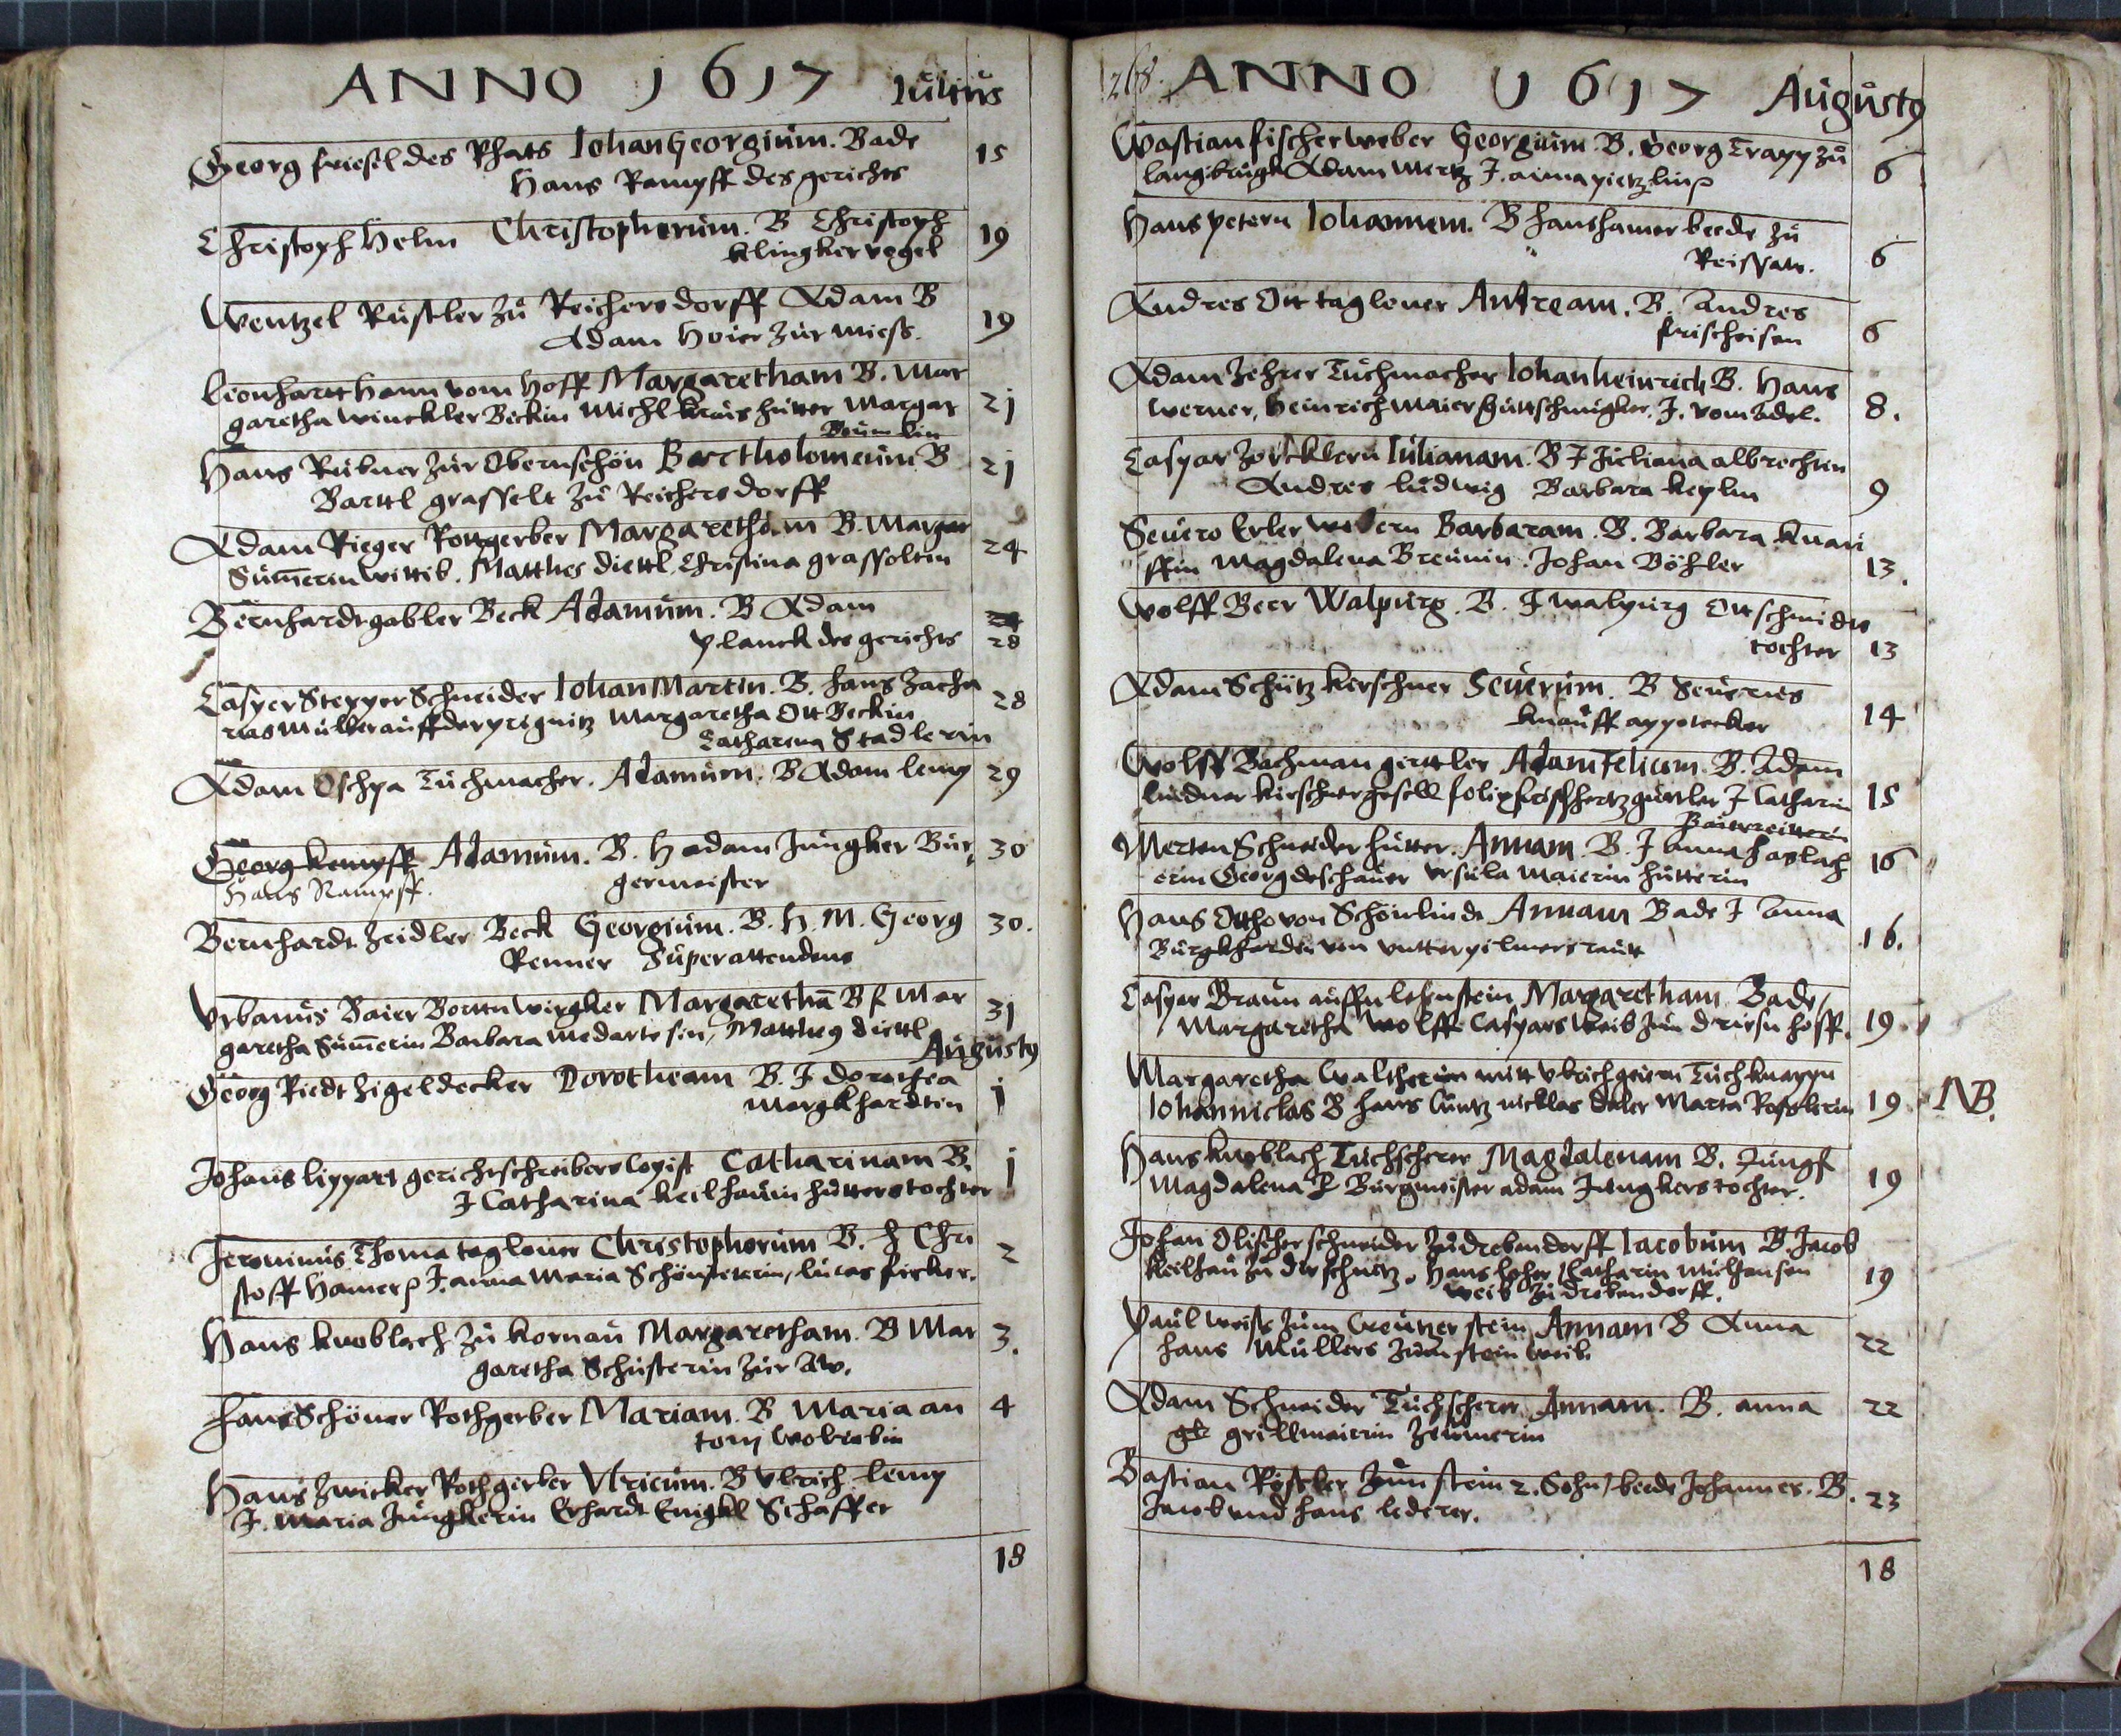 ANNO 1617 Iulius
Georg friesl des Rhats Iohan Georgium. Bade 15
Hans Rampff des gerichts
Christoph Helm Christopherum. B Christoph 19
klingkervogel
Wentzel Rustler zu Reichersdorff Adam B 19
Adam Hoier zur Miess.
Lionhartt Hann vom Hoff Margaretham B. Mar
garetha Winckler Beckin Michl kraus hutter Margar 21
Hans Rubner zur Obernschön Bartholomeum B 21
Barttl grasselt zu Reichersdorff
Adam Rieger Rottgerber Margaretham B. Margar 24
Sum̄erin Wittib. Matthes diettl Christina grasseltin
Bernhardt gabler Beck Adamum. B Adam
planck des gerichts 28
Casper Stepper Schneider Iohan Martin. B. hans Zacha 28
rias Muller auff der Prignitz Margaretha Ott Beckin
Catharina Stadlerin
Adam Oschpa Tuchmacher. Adamum. B Adam lemp 29
Georg kempff Adamum. B. H adam Jungker Bur, 30
Hans Rampff. germeister
Bernhardt Zeidler Beck Georgium. B. H. M. Georg 30.
Renner Superattendens
Urbanus Baier Borttnwirgker Margarethā B f Mar 31
garetha Sum̄erin Barbara Medartssin, Mattheus diettl
Augusty
Georg Riedt Zigeldecker Dorotheam B. J dorothea
Morgkhardtin j
Johans lippart gerichtschreibers Copist Catharinam B. j
J Catharina keilhauin hutters tochter
Jeronimus Thoma taglener Christophorum B. h Chri 2
stoff Hamer J. anna Maria Schönpeterin, lucas ficker.
Hans knoblach zu kornau Margaretham. B Mar 3.
garetha Schusterin zur Aw.
hans Schöner Rothgerber Mariam. B Maria an 4
tonj
Hans Zwicker Rothgerber Ulricum. B Ulrich lemp
J. Maria Jungkerin Erhardt Enigkl Schaffer
18
268. ANNO 1617 Augusty
Wastian fischer weber Georgium. B. Georg Trapp zu
langbrugk Adam Mertz J. anna 6
Hans petern Iohannem. B hans hamer beede zu
Reissatz. 6
Andres Ott taglener Andream. B. Andres
frischeisen 6
Adam Zehrer Tuchmacher Iohan heinrich B. Hans
Werner, Heinrich Maier huttschmugker, J. vom Adel. 8.
Caspar Iulianam. B J Juliana albrechtin
Andres ludwig Barbara keplin 9
Severo Erler webern Barbaram. B. Barbara knau
ffin Magdalena Breunin. Johan Böhler 13.
Wolff Beer Walpurg. B. J walpurg Ott schmides
tochter 13
Adam Schutz kurschner Severum. B Severus
knauff appotecker 14
Wolff Bachman gurttler Adam Felicem. B. Adam
lindner kurschner gesell felix frischhertz gurttler J Catharin 15
Baierreitterin
Merten Schneider hutter. Annam. B. J anna haslach 16
erin Georg deschauer Ursula Maierin hutterin
Hans Otto von Schönlinde Annam Bade J anna
Burgkhardin von untterpilmersreutt 16.
Caspar Braun auffn lehnstein Margaretham Bade,
Margaretha Wolff Caspars weib zun driesn hoff. 19.
Margaretha Waltherin mitt Ulrich geiern Tuchknappn
Iohannicklas B hans Cuntz nicklas daler Marta Rosslerin 19 NB.
Hans knoblach Tuchscherer Magdalenam B. Jungf
Magdalena Burgmeister adam Jungkers tochter. 19
Johan Olischer schneider zu drebendorff Iacobum B. Jacob
keilhau zu der schantz, Hans Catharin
weib zu drebendorff. 19
Paul Weiss zum Greuner stein Annam B Anna
hans Mullers zum stein weib. 22
Adam Schneider Tuchscherer Annam. B. anna 22
grillmaierin
Bastian zum stein 2. Sohn, beede Johannes. B. 23
Jacob und hans lederer.
18